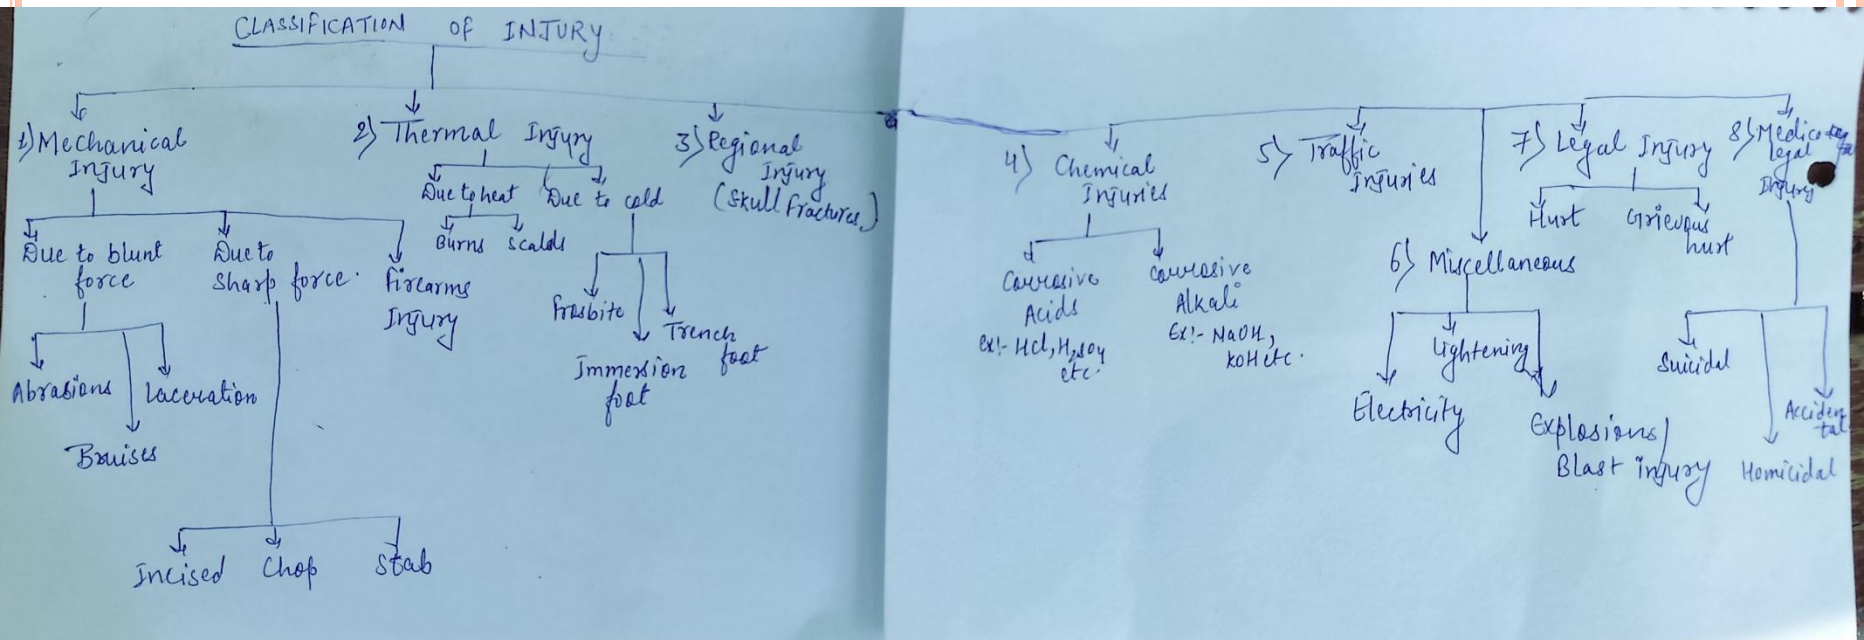 CLASSIFICATION OF INJURY
1) Mechanical
Injury
Due to blunt
force
Abrasions
Bruises
Laceration
Due to
Sharp force.
Incised
Chop
Stab
Firearms
Injury
2) Thermal Injury
Due to heat
Burns
Scalds
Due to cold
Frosbite
Immersion
foot
Trench
foot
3) Regional
Injury
(Skull fractures)
4) Chemical
Injuries
Corrosive
Acids
ex:- HCl, H2SO4
etc.
Corrosive
Alkali
Ex:- NaOH,
KOH etc.
5) Traffic
Injuries
6) Miscellaneous
Electricity
Lightening
Explosions/
Blast injury
7) Legal Injury
Hurt
Grievous
hurt
8) Medico
legal
Injury
Suicidal
Homicidal
Acciden
tal